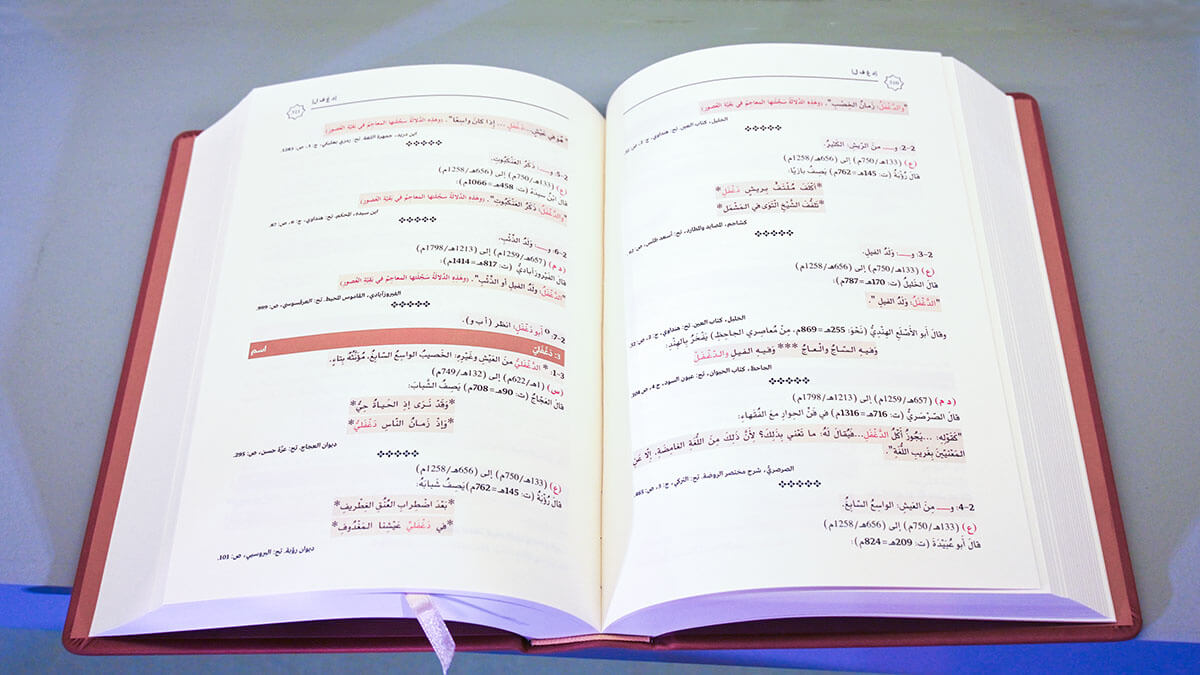 (د غ ف ل)
"والدَّغْفَلُ: زَمانُ الخِصْبِ". (وهذه الدّلالةُ سجّلتها المعاجم في بقيّة العصور)
الخليل، كتاب العين، تح: هنداوي، ج: 2، ص:
2-2: و ــــ مِنَ الرِّيشِ: الكَثيرُ.
(ع) (133هـ/750م) إلى (656هـ/1258م)
قالَ رُؤْبَةُ (ت: 145هـ=762م) يَصِفُ بازِيًا:
*أكْلَفَ مُلْتَفٌّ بِرِيشٍ دَغْفَلِ
*تَلَفُّفَ الشَّيْخِ الْتَوَى في المَشْمَلِ*
كشاجم، المصايد والمطارد، تح: أسعد طلس، ص:
2-3: و ــــ: وَلَدُ الفيلِ.
(ع) (133هـ/750م) إلى (656هـ/1258م)
قالَ الخَليلُ (ت: 170هـ=787م):
"الدَّغْفَلُ: وَلَدُ الفيلِ".
الخليل، كتاب العين، تح: هنداوي، ج: 3، ص:
وقالَ أبو الأَصْلَعِ الهِنْدِيُّ (نَحْوَ: 255هـ=869م، مِنْ مُعاصِري الجاحِظِ) يَفْخَرُ بِالهِنْدِ:
وَفيهِ السَّاجُ والْعاجُ *** وَفيهِ الفيلُ والدَّغْفَلُ
الجاحظ، كتاب الحيوان، تح: عيون السود، ج: 4، ص:
(د م) (657هـ/1259م) إلى (1213هـ/1798م)
قالَ الصَّرْصَرِيُّ (ت: 716هـ=1316م) في فَنِّ الحِوارِ مَعَ الفُقَهاءِ:
"كَقَوْلِهِ: ...يَجُوزُ أكْلُ الدَّغْفَلِ...فَيُقالُ لَهُ: ما تَعْني بِذَلِكَ؟ لِأنَّ ذَلِكَ مِنَ اللُّغَةِ الغامِضَةِ، إلّا عَنِ
المَعْنِيِّينَ بِغَريبِ اللُّغَةِ".
الصرصري، شرح مختصر الروضة، تح: التركي، ج: 3، ص:
2-4: و ــــ مِنَ العَيْشِ: الواسِعُ السَّابِغُ.
(ع) (133هـ/750م) إلى (656هـ/1258م)
قالَ أبو عُبَيْدَةَ (ت: 209هـ=824م):
(د غ ف ل)
"هُوَ في عَيْشٍ...دَغْفَلٍ... إذا كانَ واسِعًا". (وهذه الدّلالةُ سجّلتها المعاجم في بقيّة العصور)
ابن دريد، جمهرة اللغة، تح: رمزي بعلبكي، ج:
2-5: و ــــ: ذَكَرُ العَنْكَبُوتِ.
(ع) (133هـ/750م) إلى (656هـ/1258م)
قالَ ابْنُ سِيدَهْ (ت: 458هـ=1066م):
"والدَّغْفَلُ: ذَكَرُ العَنْكَبُوتِ". (وهذه الدّلالةُ سجّلتها المعاجم في بقيّة العصور)
ابن سيده، المحكم، تح: هنداوي، ج: 6، ص:
2-6: و ــــ: وَلَدُ الذِّئْبِ.
(د م) (657هـ/1259م) إلى (1213هـ/1798م)
قالَ الفَيْرُوزَآباديُّ (ت: 817هـ=1414م):
"الدَّغْفَلُ: وَلَدُ الفيلِ أو الذِّئْبِ". (وهذه الدّلالةُ سجّلتها المعاجم في بقيّة العصور)
الفيروزآبادي، القاموس المحيط، تح: العرقسوسي، ص: 999.
2-7: أبو دَغْفَلٍ: انظر (أ ب و).
3: دَغْفَلِيّ اسم
3-1: * الدَّغْفَلِيُّ مِنَ العَيْشِ وغَيْرِهِ: الخَصيبُ الواسِعُ السَّابِغُ، مُؤَنَّثُهُ بِتاءٍ.
(س) (1هـ/622م) إلى (132هـ/749م)
قالَ العَجَّاجُ (ت: 90هـ=708م) يَصِفُ الشَّبابَ:
*وَقَدْ نَرَى إذِ الحَيَاةُ حِيُّ*
*وَإذْ زَمَانُ النَّاسِ دَغْفَلِيُّ*
ديوان العجاج، تح: عزّة حسن، ص: 295.
(ع) (133هـ/750م) إلى (656هـ/1258م)
قالَ رُؤْبَةُ (ت: 145هـ=762م) يَصِفُ شَبابَهُ:
*بَعْدَ اضْطِرابِ العُنُقِ الغِطْرِيفِ*
*في دَغْفَلِيِّ عَيْشِنا المَغْدُوفِ*
ديوان رؤبة، تح: البروسي، ص: 101.